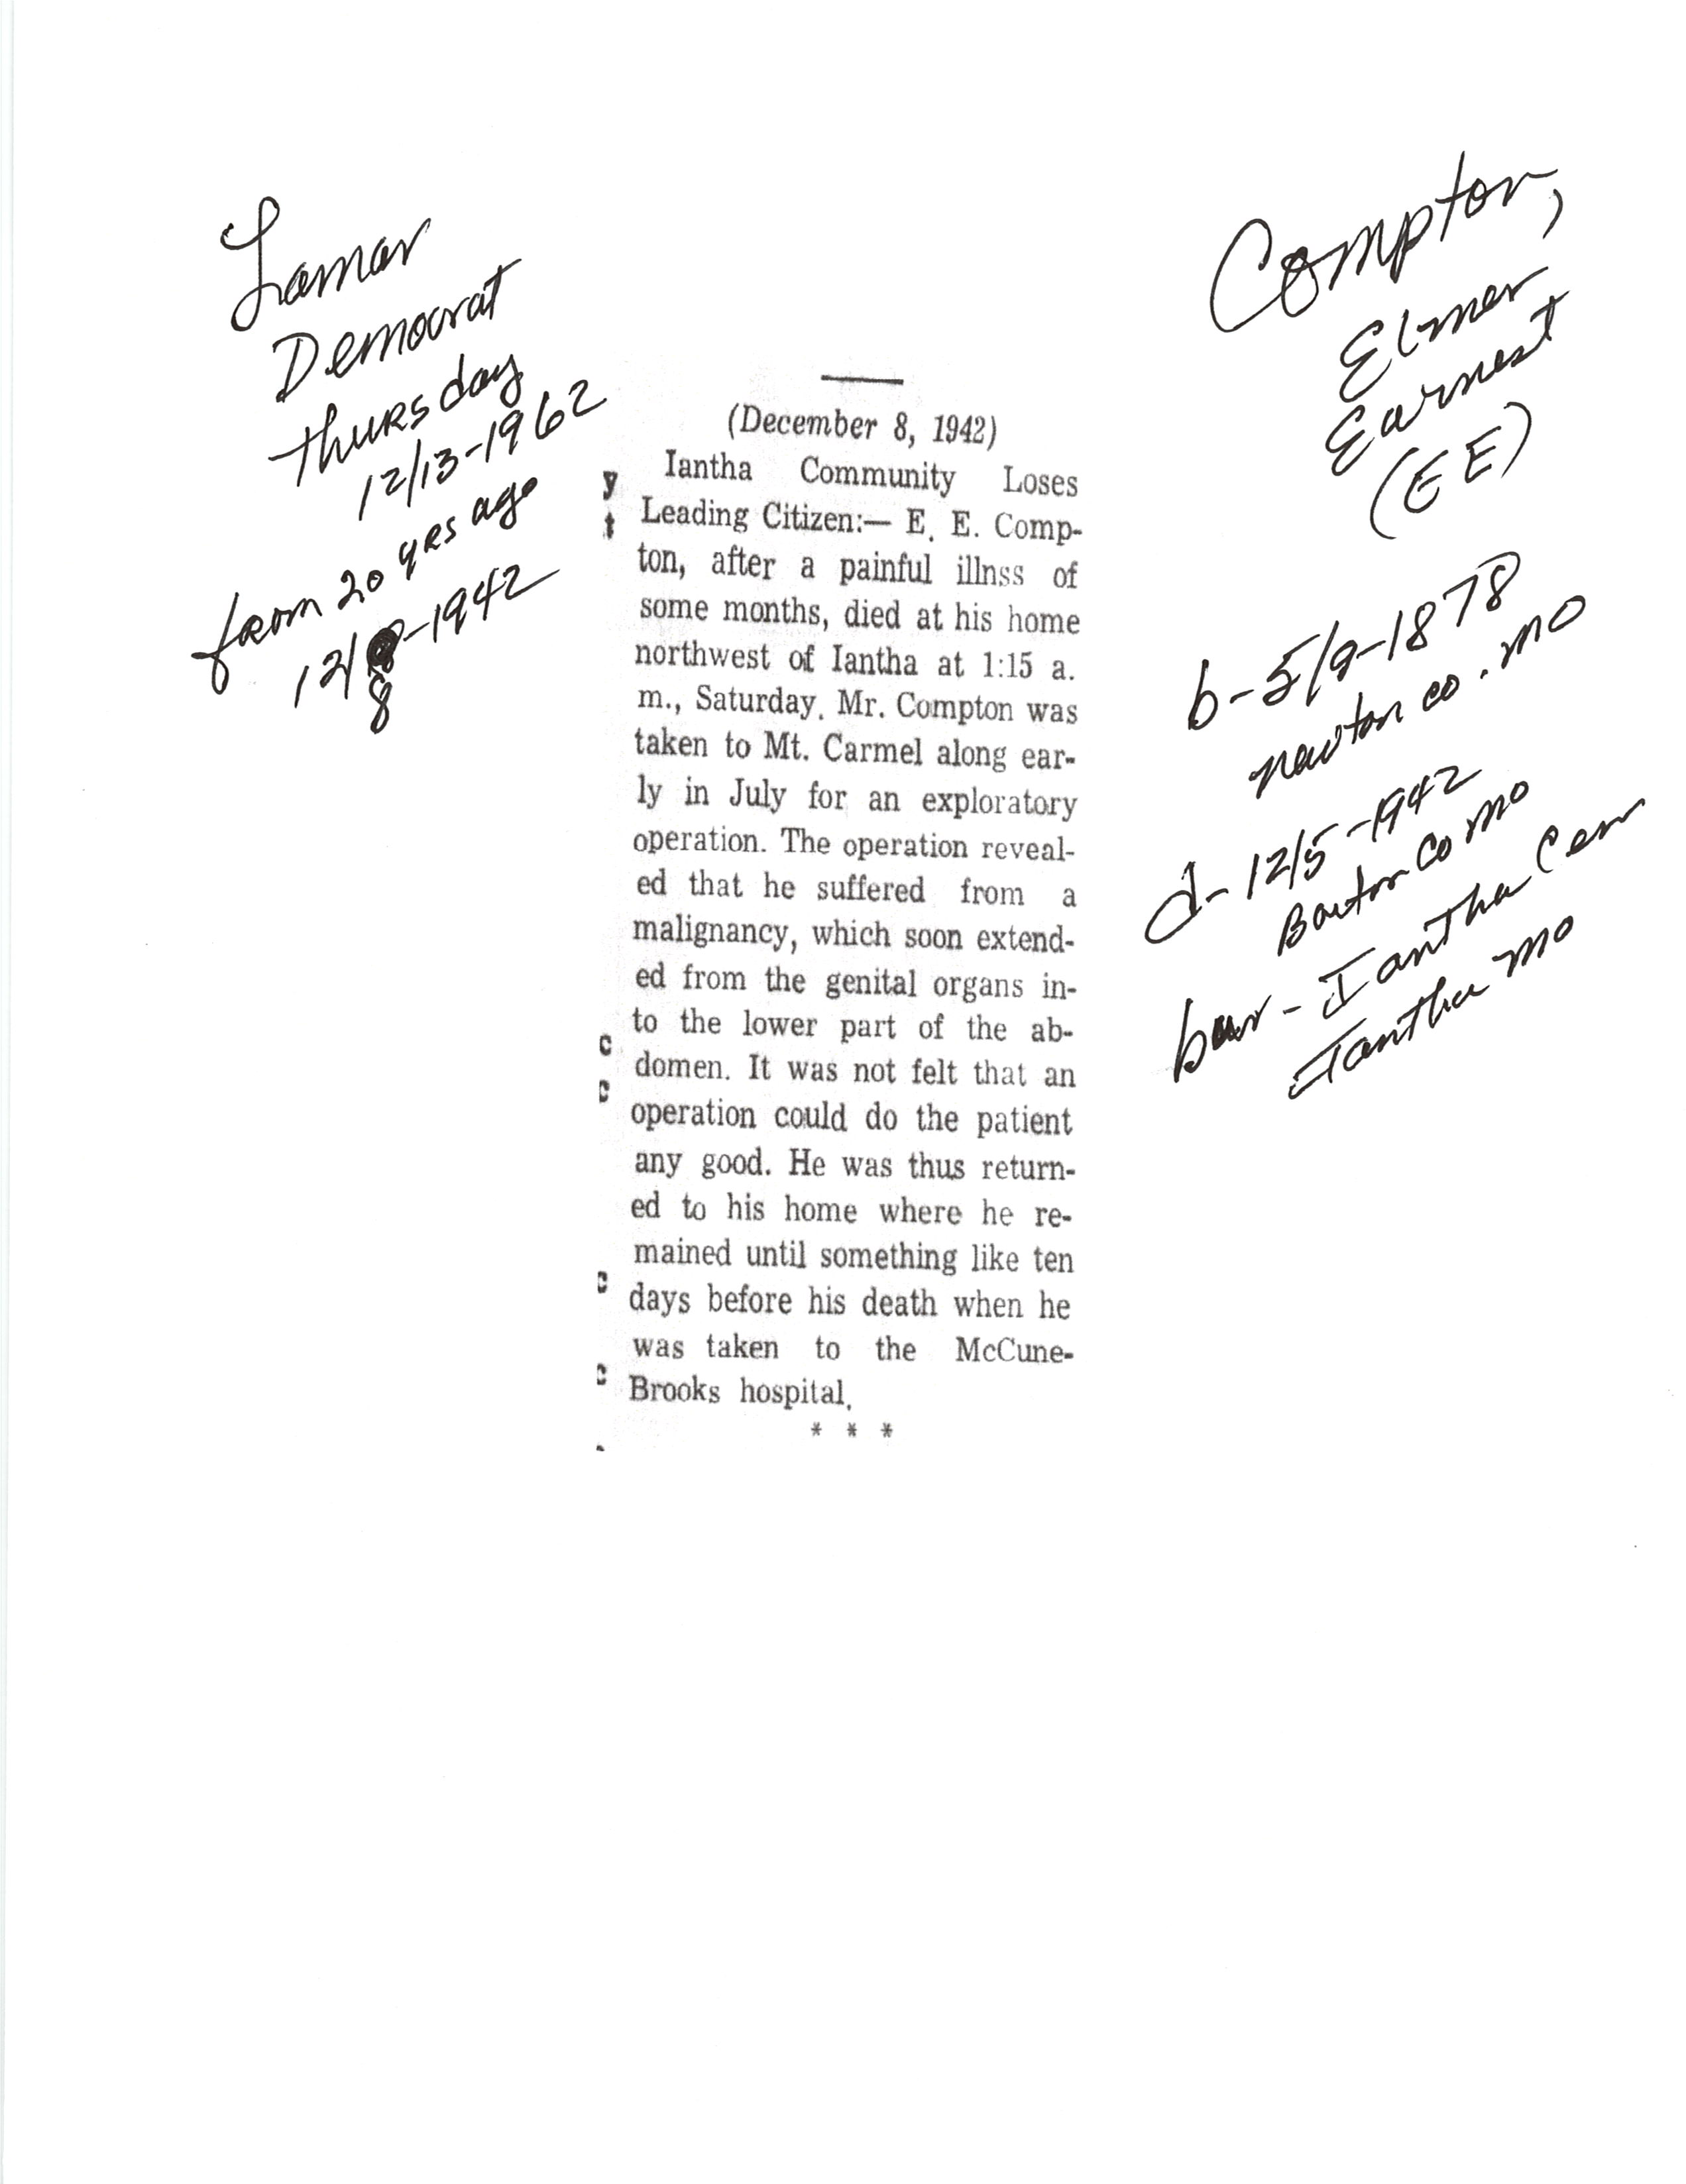 Lamar
Democrat
thursday
12/13-1962
from 20 yrs ago
12/8-1942
8
Compton,
Elmer
Earnest
(EE)
b-5/9-1878
newton co. mo
d-12/5-1942
Barton Co mo
bur-Iantha Cem
Iantha mo
(December 8, 1942)
Iantha Community Loses
Leading Citizen:— E. E. Comp-
ton, after a painful illnss of
some months, died at his home
northwest of Iantha at 1:15 a.
m., Saturday. Mr. Compton was
taken to Mt. Carmel along ear-
ly in July for an exploratory
operation. The operation reveal-
ed that he suffered from a
malignancy, which soon extend-
ed from the genital organs in-
to the lower part of the ab-
domen. It was not felt that an
operation could do the patient
any good. He was thus return-
ed to his home where he re-
mained until something like ten
days before his death when he
was taken to the McCune-
Brooks hospital.
* * *
y
t
c
c
c
c